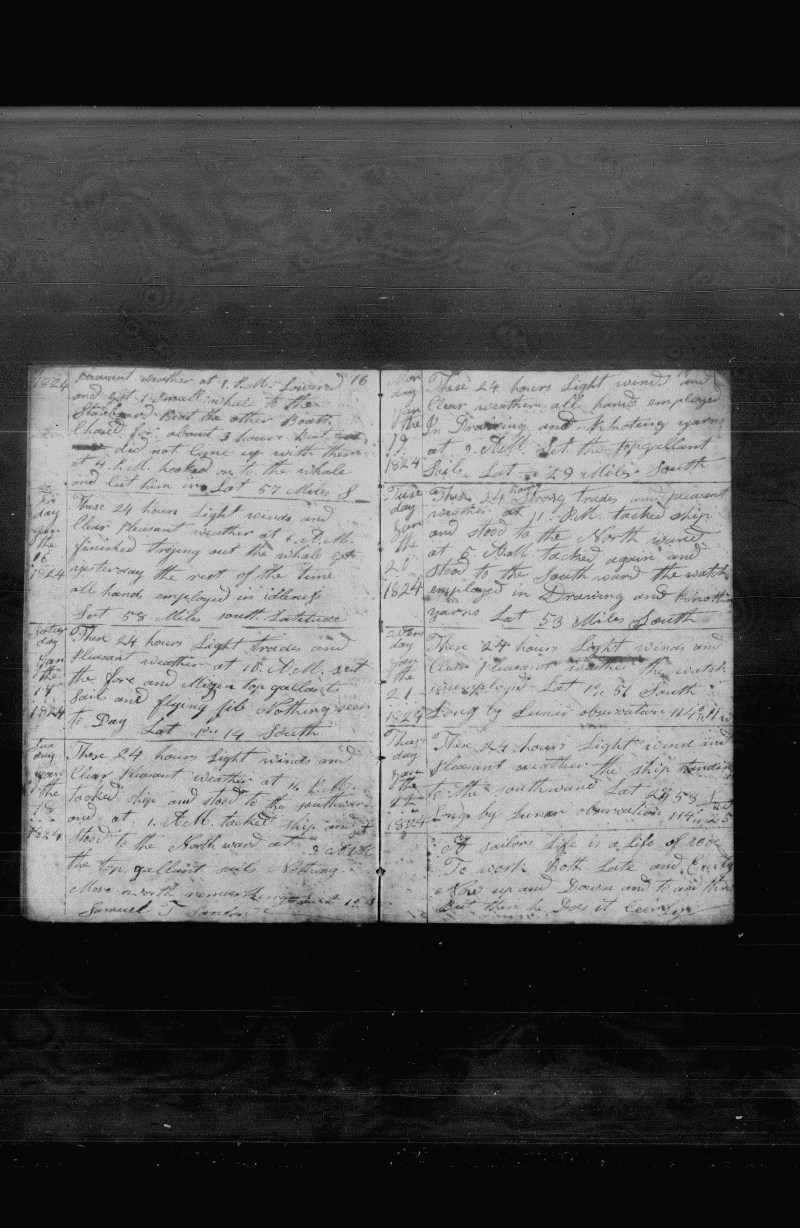 1824
pleasant weather at 1. P.M. Lowered 16
and got 1 Small whale to the
Starboard Boat the other Boats
Chased for about 3 hours But
did not Come up with them
at 4. P.M. hooked on to the whale
and cut him in Lat 57 Miles S
Fri
day
Jan
the
16
1824
These 24 hours Light winds and
Clear Pleasant weather at 6. A.M.
finished trying out the whale got
yesterday the rest of the time
all hands employed in idleness
Lat 58 Miles south Latitude
Satur
day
Jan
the
17
1824
These 24 hours Light trades and
Pleasant weather at 10. A.M. set
the fore and Mizen top gallants
Sails and flying jib Nothing seen
to Day Lat 1°. 14 South
Sun
day
Jan
the
18
1824
These 24 hours Light winds and
Clear Pleasant weather at P.M.
tacked ship and stood to the southward
and at 1. A.M. tacked ship and
stood to the North ward at
the top gallant sails Nothing
More worth remarking
Samuel T
Mon
day
Jan
the
19
1824
These 24 hours Light winds and
Clear weather all hands employed
In Drawing and Knoting yarns
at 9. A.M. Set the topgallant
Sails Lat 29 Miles South
Tuse
day
Jan
the
20
1824
These 24 hours Strong trades and pleasant
weather at 11. P.M. tacked ship
and stood to the North ward
at 5 A.M. tacked again and
Stood to the South ward the watch
employed in Drawing and Knoting
yarns Lat 53 Miles South
Wens
day
Jan
the
21
1824
These 24 hours Light winds and
Clear Pleasant weather the watch
unemployed Lat 1°. 51 South
Long by Lunar observation 114°. 11 W
Thurs
day
Jan
the
22
1824
These 24 hours Light wind and
Pleasant weather the ship standing
to the southward Lat 2°. 53 S
Long by Lunar observation 114°. 25
A sailors Life is a Life of
To work Both Late and Early
Now up and Down and to and thro
But then he Does it